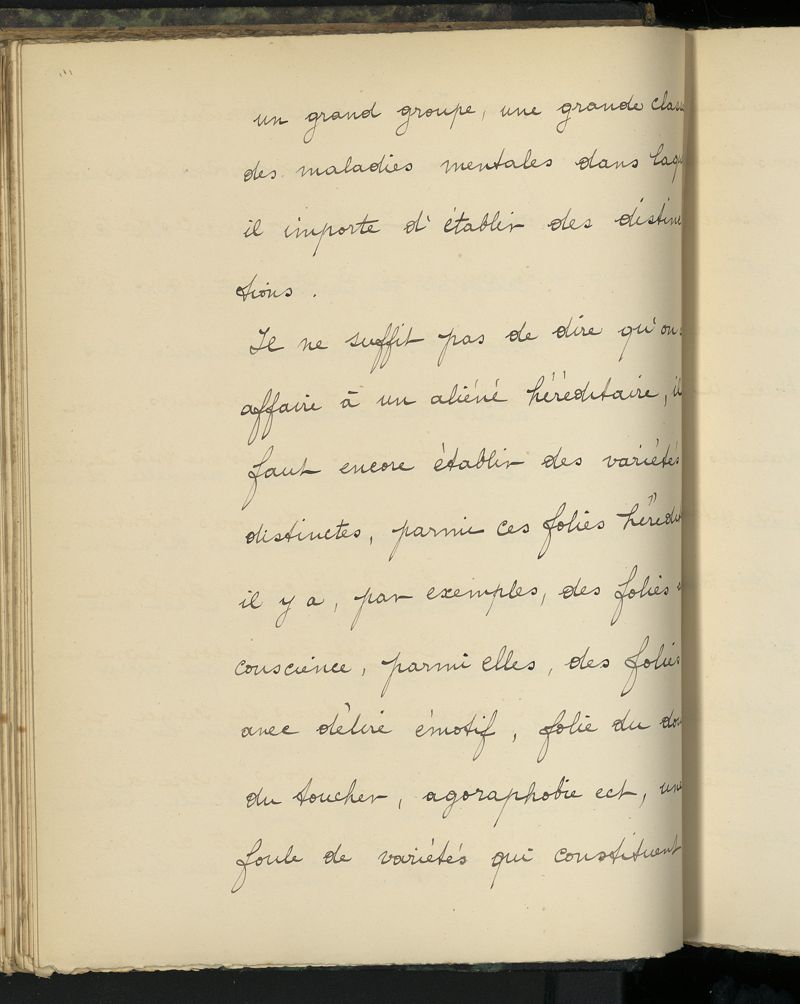 un grand groupe, une grande
des maladies mentales dans
il importe d'établir des
tions.
Il ne suffit pas de dire qu'on
affaire à un aliéné héréditaire, il
faut encore établir des variétés
distinctes, parmi ces folies
il y a, par exemples, des folies
conscience, parmi elles, des folies
avec délire émotif, folie du
du toucher, agoraphobie ect, une
foule de variétés qui constituent